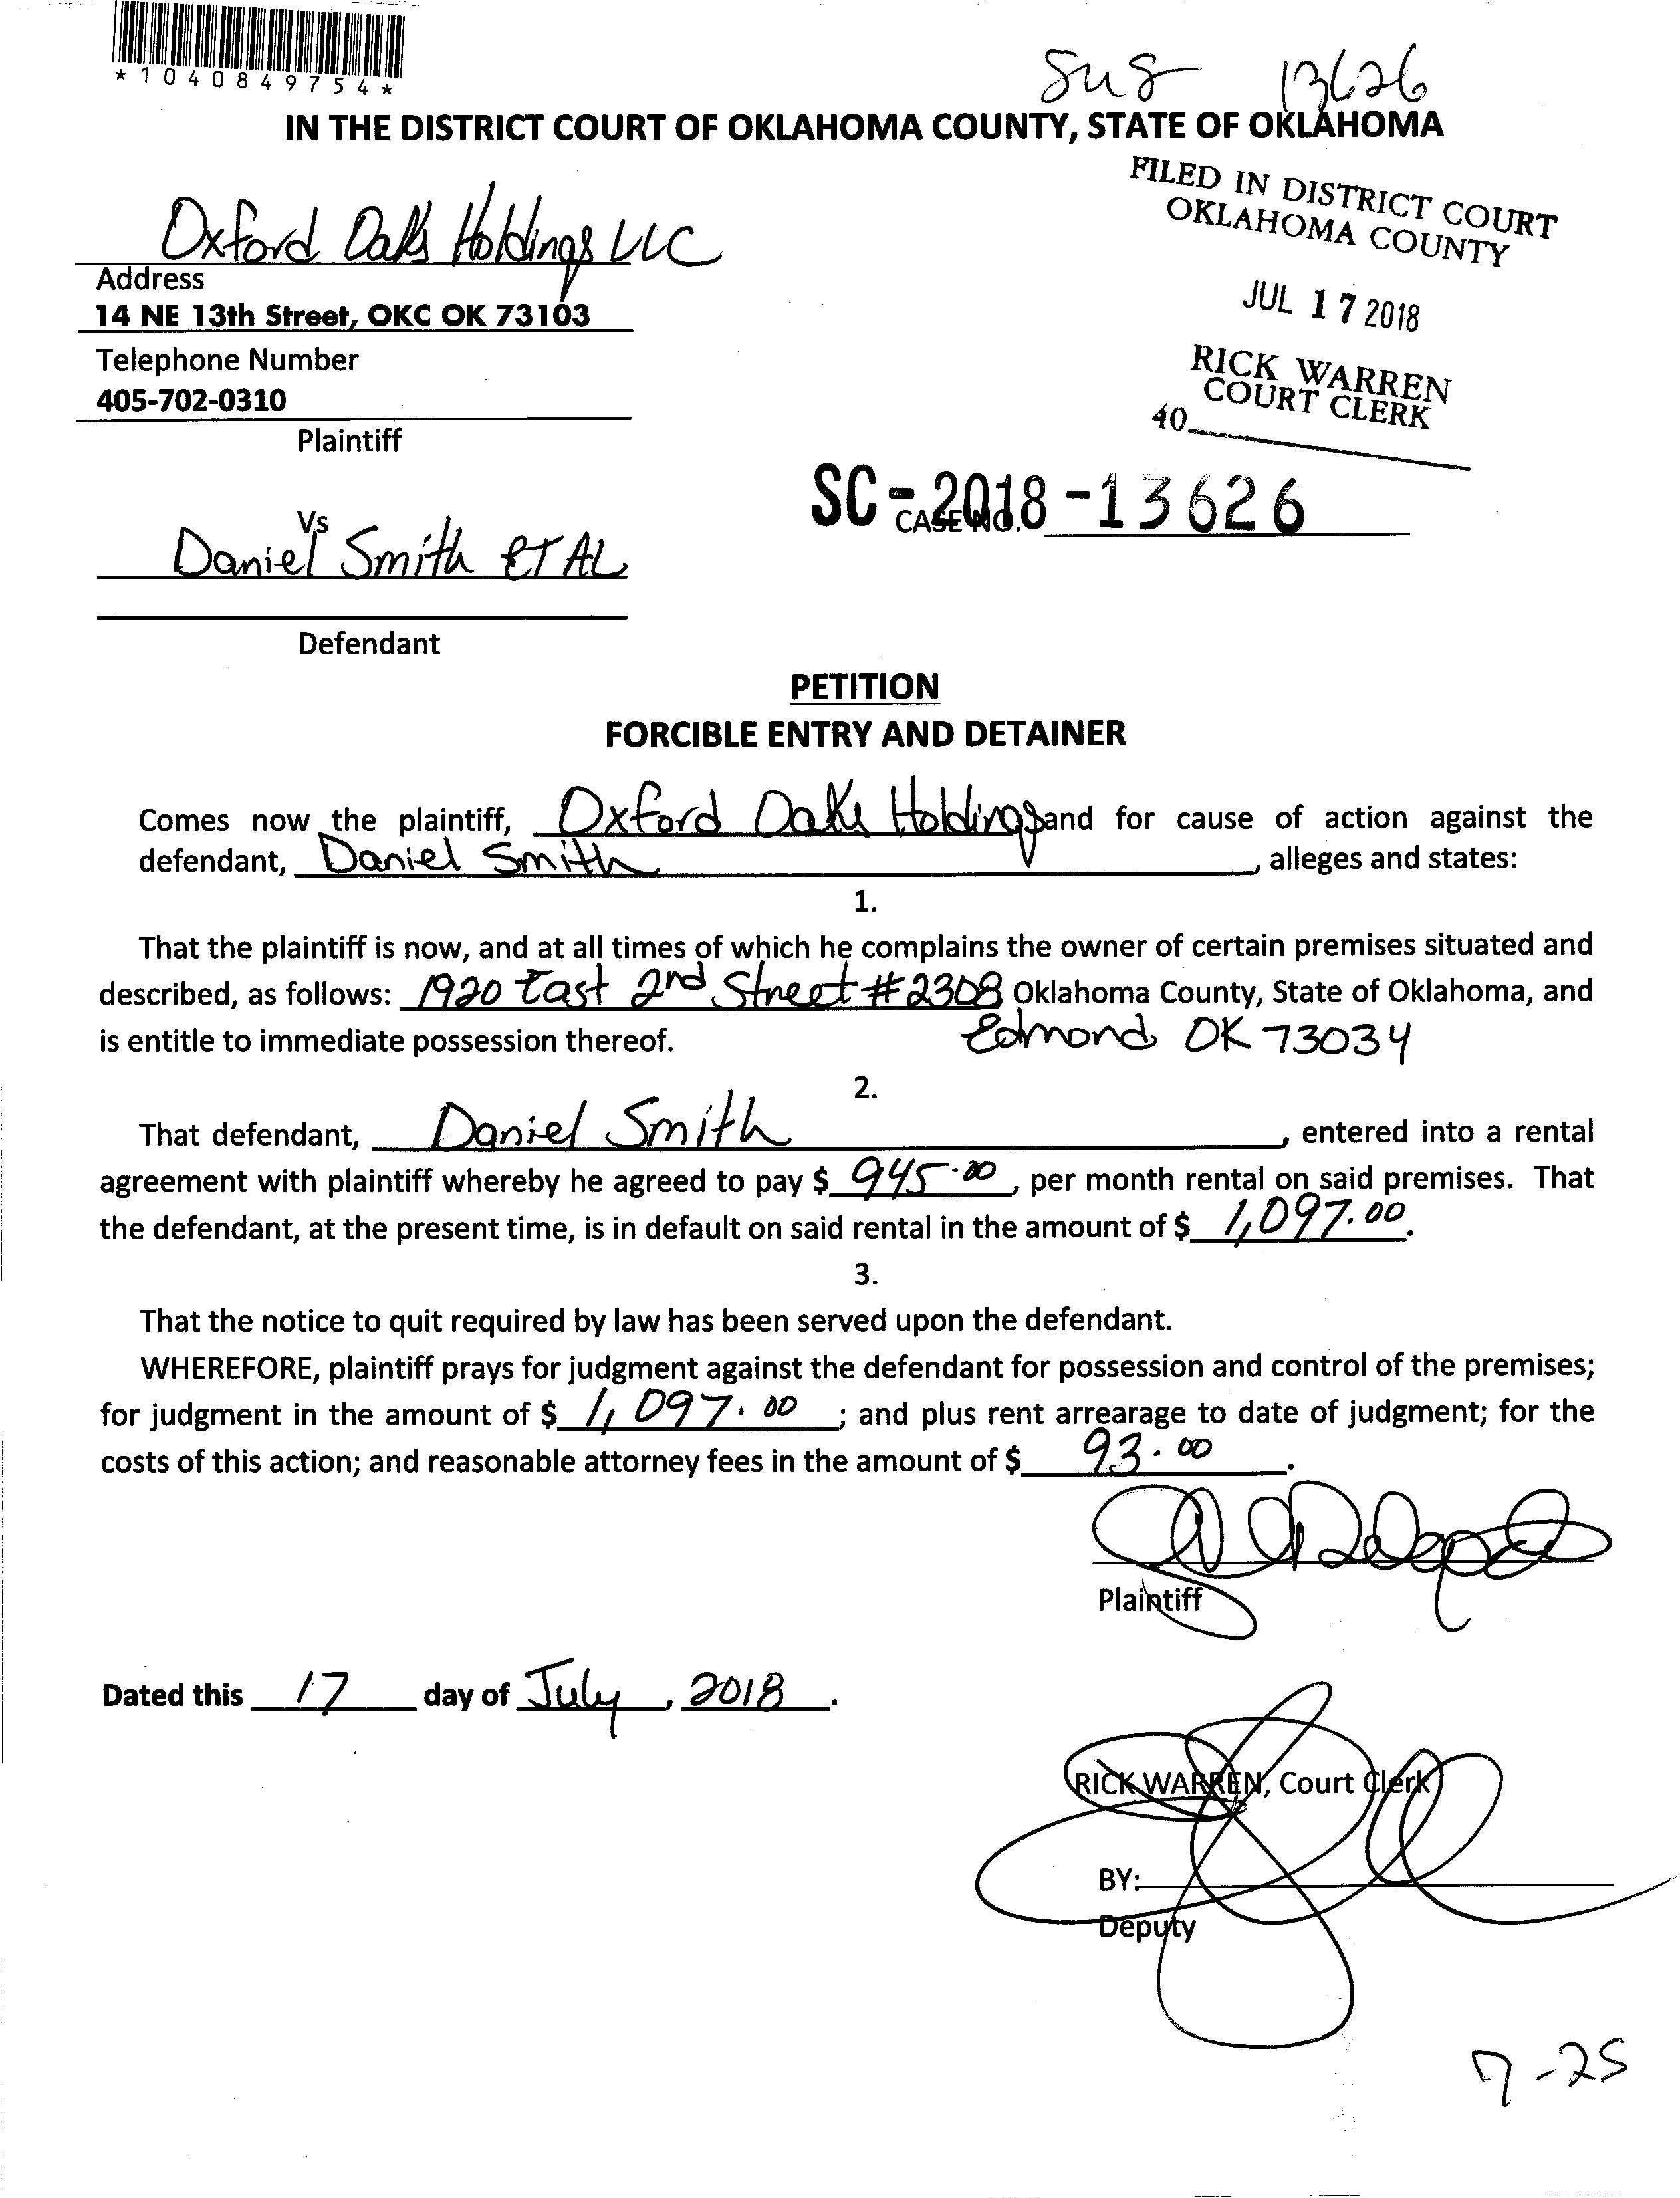 *1040849754*
13626
IN THE DISTRICT COURT OF OKLAHOMA COUNTY, STATE OF OKLAHOMA
FILED IN DISTRICT COURT
OKLAHOMA COUNTY
JUL 17 2018
RICK WARREN
COURT CLERK
40
Oxford Oaks Holdings LLC
Address
14 NE 13th Street, OKC OK 73103
Telephone Number
405-702-0310
Plaintiff
SC-2018-13626
CASE NO.
Vs
Daniel Smith ET AL
Defendant
PETITION
FORCIBLE ENTRY AND DETAINER
Comes now the plaintiff, Oxford Oaks Holdings and for cause of action against the
defendant, Daniel Smith, alleges and states:
1.
That the plaintiff is now, and at all times of which he complains the owner of certain premises situated and
described, as follows: 1920 East 2nd Street #2308 Oklahoma County, State of Oklahoma, and
is entitle to immediate possession thereof. Edmond OK 73034
2.
That defendant, Daniel Smith, entered into a rental
agreement with plaintiff whereby he agreed to pay $ 945.00, per month rental on said premises. That
the defendant, at the present time, is in default on said rental in the amount of $ 1,097.00.
3.
That the notice to quit required by law has been served upon the defendant.
WHEREFORE, plaintiff prays for judgment against the defendant for possession and control of the premises;
for judgment in the amount of $ 1,097.00; and plus rent arrearage to date of judgment; for the
costs of this action; and reasonable attorney fees in the amount of $ 93.00.
Plaintiff
Dated this 17 day of July, 2018.
RICK WARREN, Court Clerk
BY:
Deputy
7-25